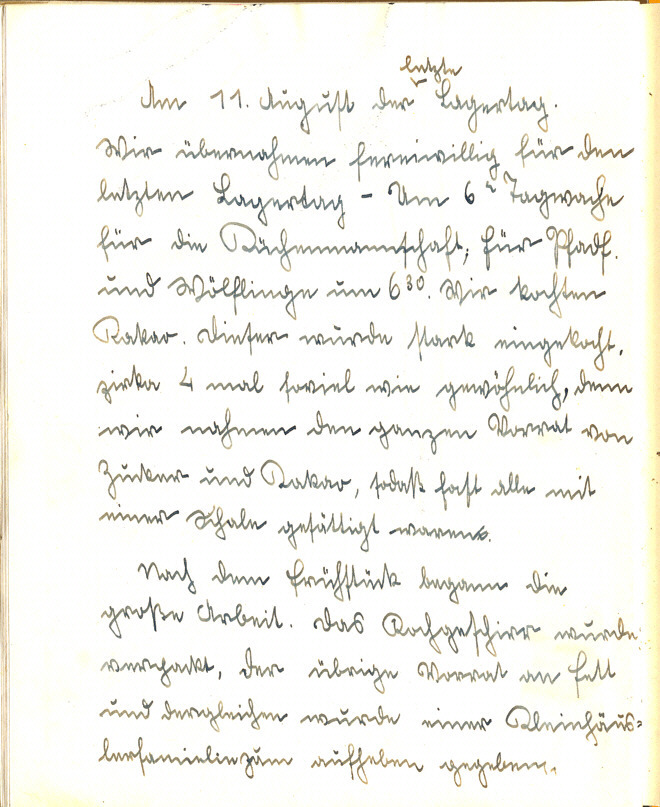 letzte
Am 11. August der Lagertag.
Wir übernahmen fereiwillig für den
letzten Lagertag - Um 6 h Tagwache
für die Küchenmannschaft, für Pfadf.
und Wölflinge um 6 30. Wir kochten
Kakao. Dieser wurde stark eingekocht,
zirka 4 mal soviel wie gewöhnlich, denn
wir nahmen den ganzen Vorrat von
Zucker und Kakao, sodaß fast alle mit
einer Schale gesättigt waren.
Nach dem Frühstück begann die
große Arbeit. Das Kochgeschirr wurde
verpackt, der übrige Vorrat an Fett
und dergleichen wurde einer Kleinhäus=
lerfamielie zum aufheben gegeben.